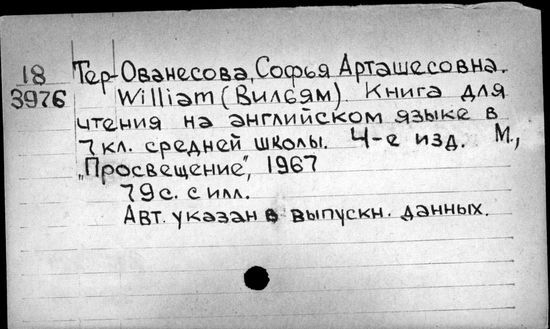 18 Тер-Ованесова, Софья Арташесовна.
3976 William (Вильям). Книга для
чтения на английском языке в
7 кл. средней школы. 4-е изд. М.,
„Просвещение", 1967
79 с. с илл.
Авт. указан в выпускн. данных.